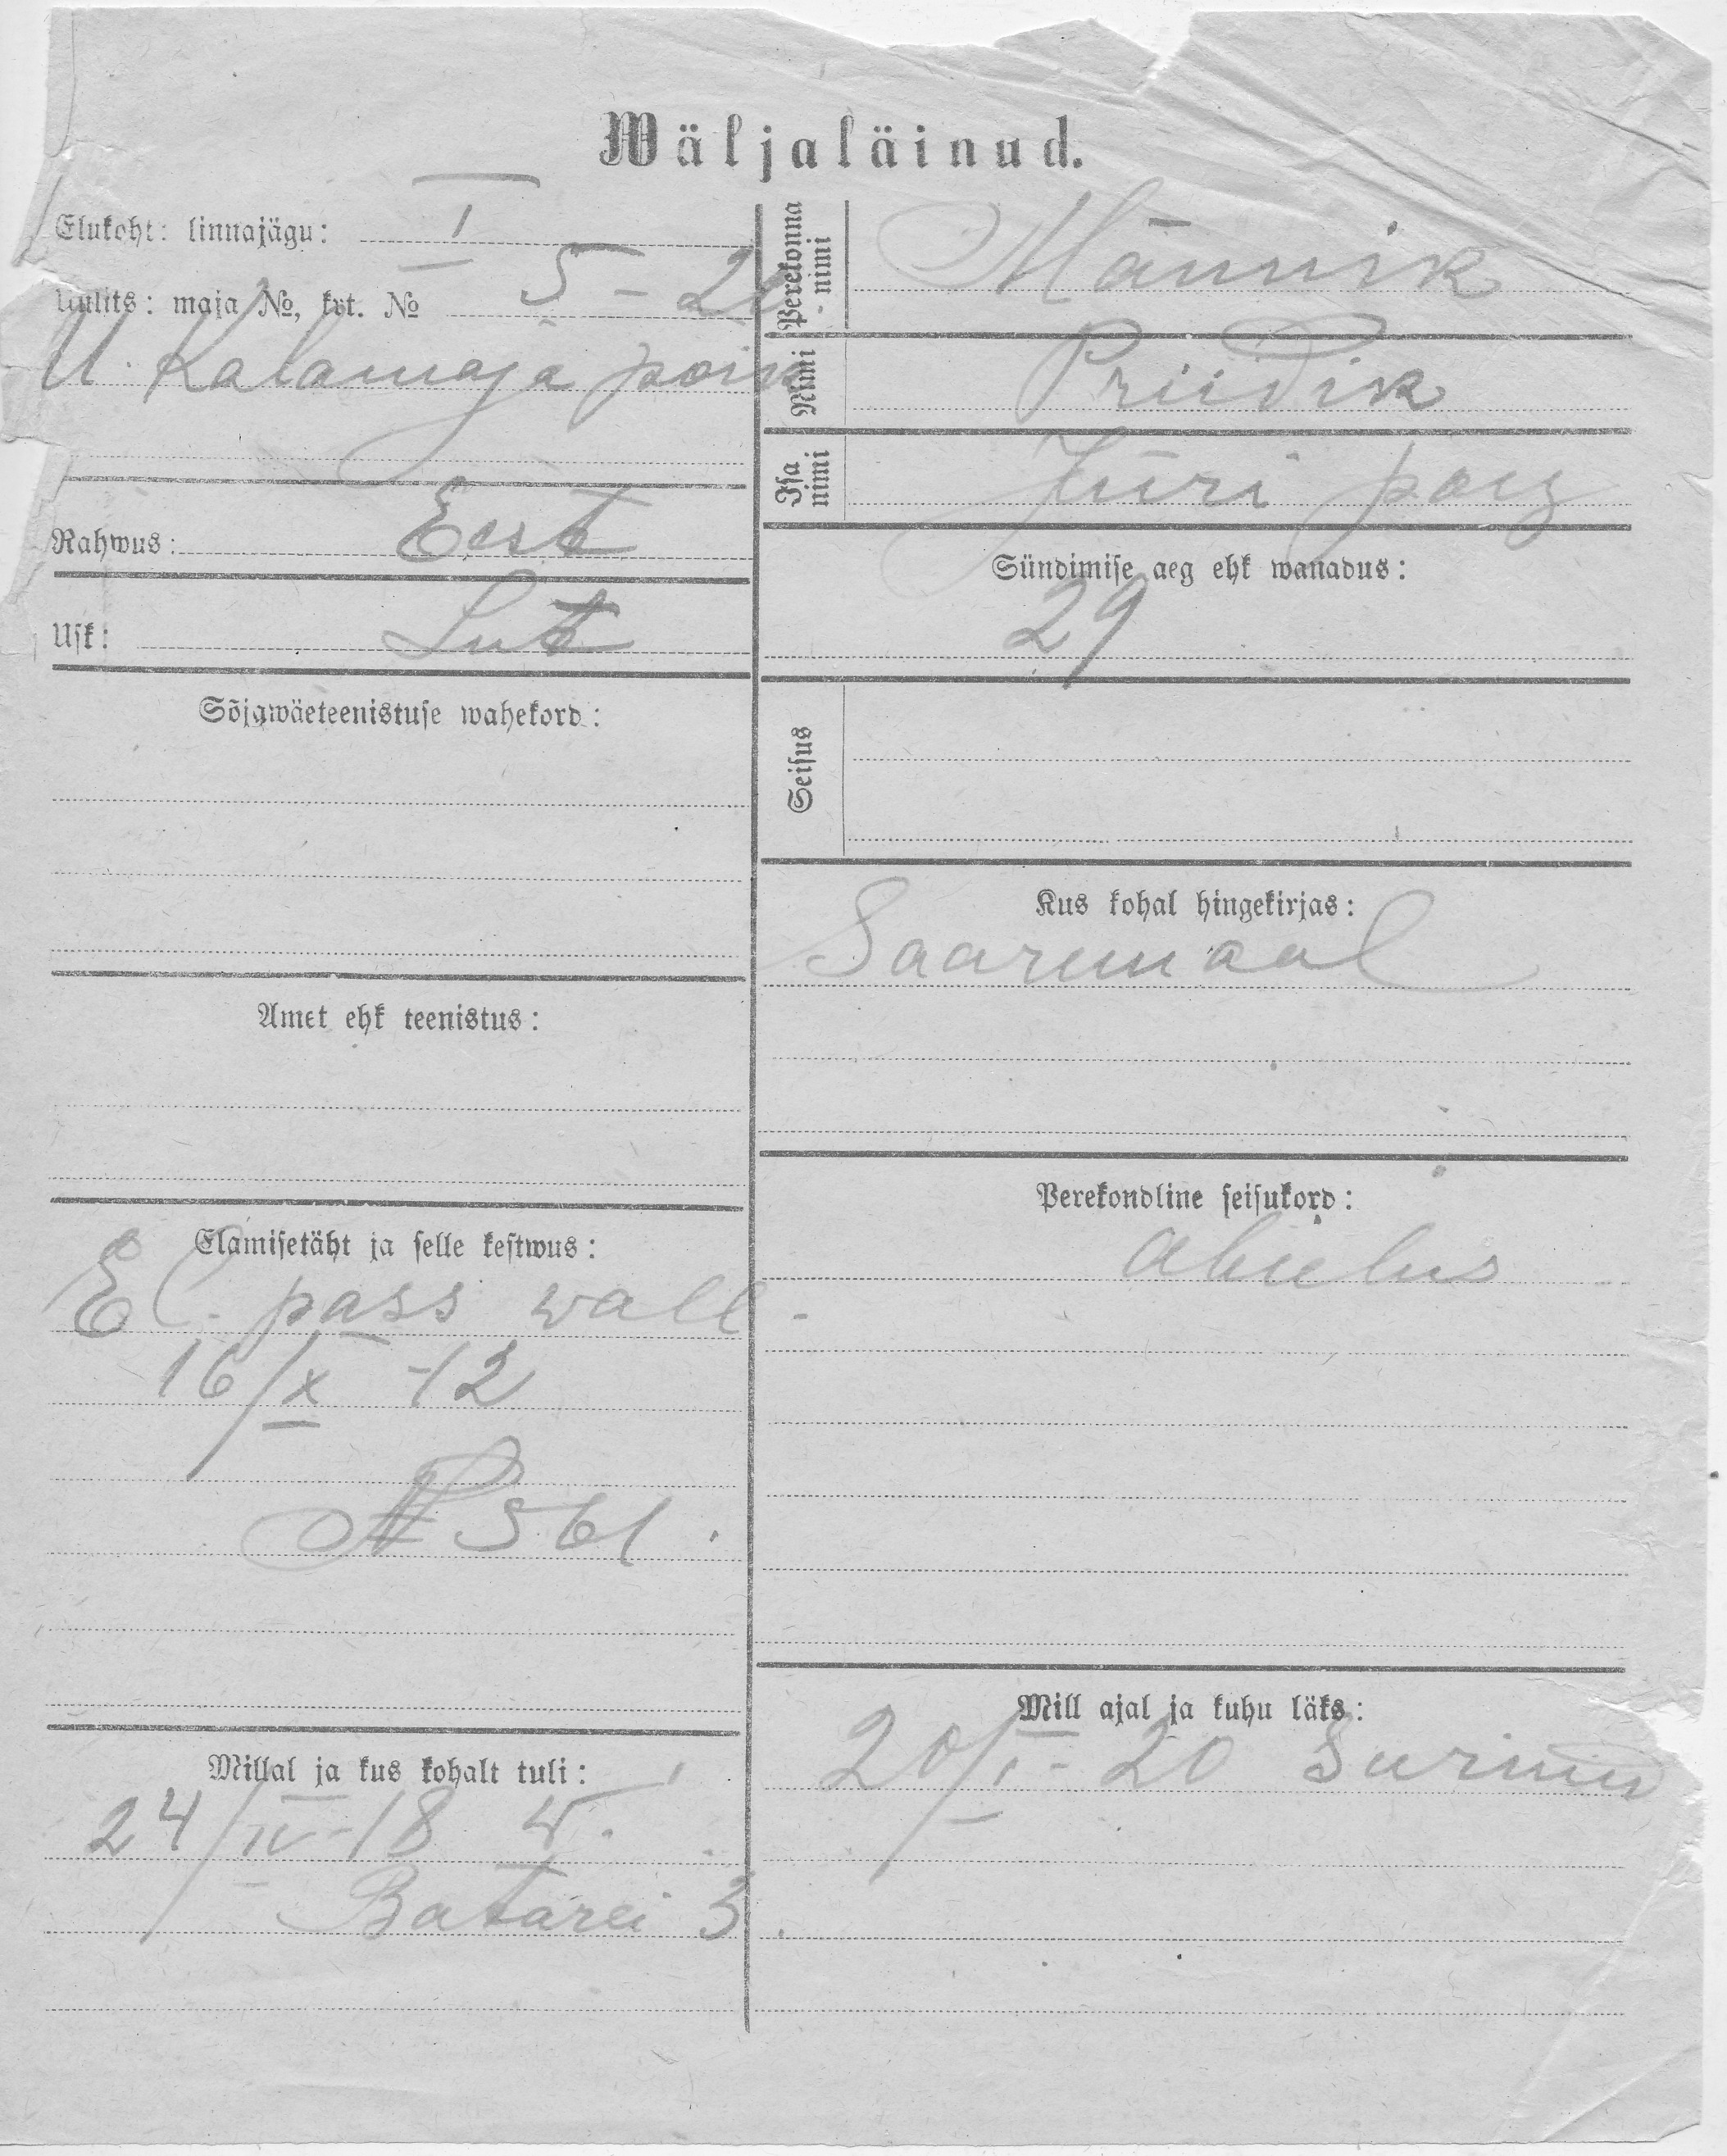 Wäljaläinud.
Elukoht: linnajägu: I
Uulits: maja №, krt. № 5 -
U. Kalamaja põik
Rahwus: Eest
Usk: Lut
Sõjawäeteenistuse wahekord:
Amet ehk teenistus:
Elamisetäht ja selle kestwus:
pass wall.
16/X -12
№ 561.
Millal ja kus kohalt tuli:
24/IV-18 W.
Batarei 3.
Perekonna
nimi
Männik
Nimi
Priidik
Isa
nimi
Jüri poeg
Sündimise aeg ehk wanadus:
29
Seisus
Kus kohal hingekirjas:
Saaremaal
Perekondline seisukord:
abielus
Mill ajal ja kuhu läks:
20/I-20 Surnud